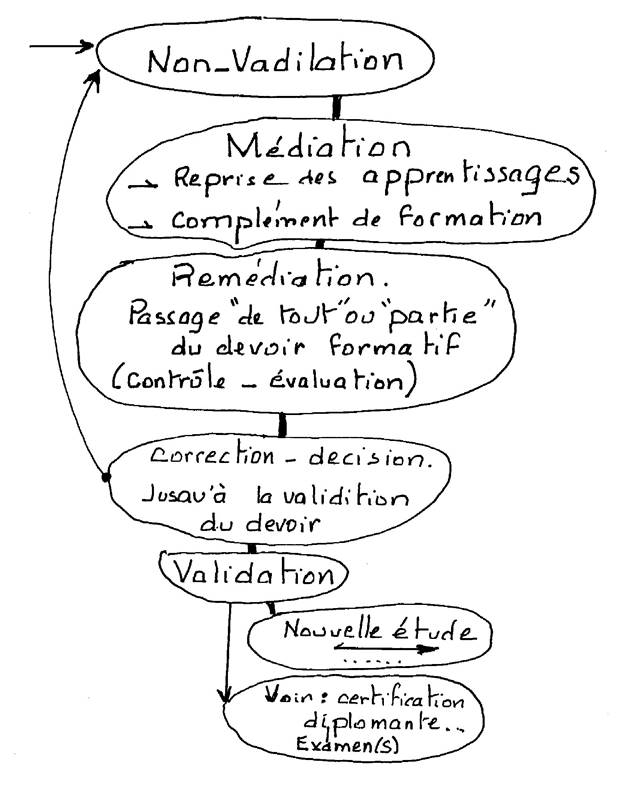 Non_Vadilation
Médiation
→ Reprise des apprentissages
→ complément de formation
Remédiation.
Passage "de tout" ou "partie"
du devoir formatif
(contrôle - évaluation)
correction - decision.
Jusqu'à la validition
du devoir
Validation
Nouvelle étude
......
Voin : certification
diplomante...
Examen(s)